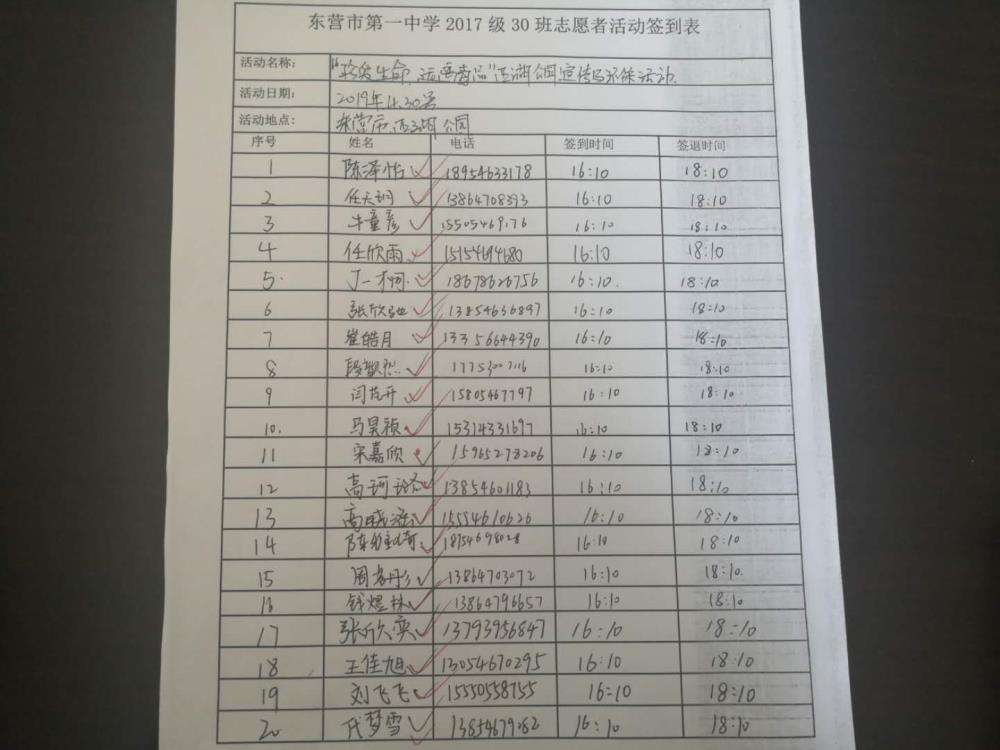 东营市第一中学2017级30班志愿者活动签到表
活动名称： “珍爱生命,远离毒品”清湖公园宣传与环保活动.
活动日期： 2019年4.30
活动地点： 东营市清湖公园
序号 姓名 电话 签到时间 签退时间
1 陈泽怡 18954633178 16:10 18:10
2 任天 13864708393 16:10 18:10
3 牛童彦 15505469176 16:10 18:10
4 任欣雨 15154694680 16:10 18:10
5. 丁一 18678626756 16:10. 18:10
6 张欣 13854636897 16:10 18:10
7 崔皓月 13356644390 16:10 18:10
8 段 16:10 18:10
9 闫芃开 15805467797 16:10 18:10
10. 马昊祯 15314331697 16:10 18:10
11 宋嘉欣 15965278206 16:10 18:10
12 高珂 13854601183 16:10 18:10
13 高晓 15554610626 16:10 18:10
14 陈 18754698028 16:10 18:10
15 周 13864703072 16:10 18:10.
16 钱煜林 13864796657 16:10 18:10
17 张欣奕 13793956847 16:10 18:10
18 王佳旭 13054670295 16:10 18:10
19 刘飞飞 15550558755 16:10 18:10
20 代梦雪 13854679082 16:10 18:10